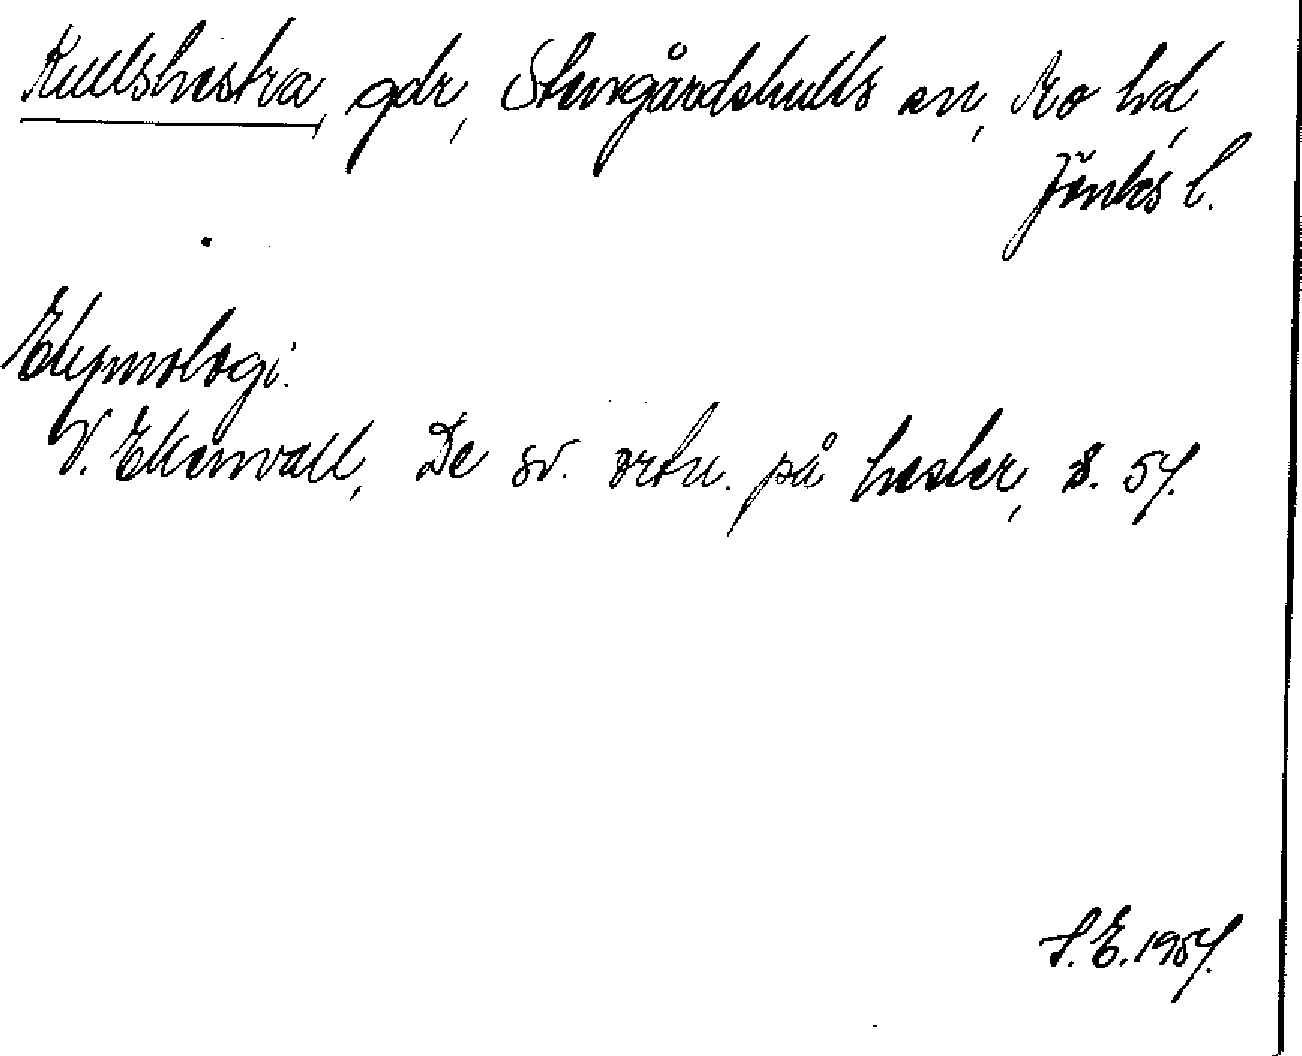 Kullshestra, gdr, Stengårdshults sn, Mo hd,
Jönk:s l.
Etymologi:
V. Ekenvall, De sv. ortn. på hester, s. 57.
S.E. 1957.